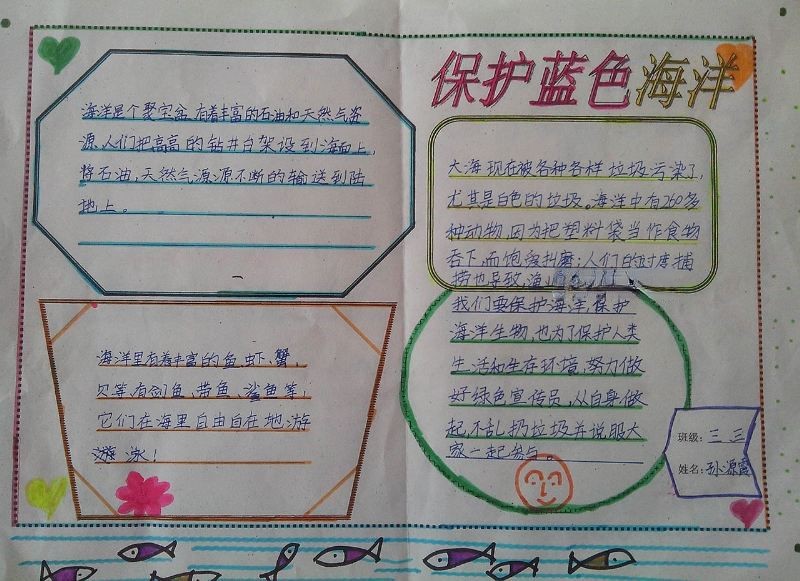 保护蓝色海洋
海洋是个聚宝盆,有着丰富的石油和天然气资
源,人们把高高的钻井台架设到海面上,
将石油,天然气源源不断的输送到陆
地上。
大海现在被各种各样垃圾污染了,
尤其是白色的垃圾。海洋中有260多
种动物,因为把塑料袋当作食物
吞下,而饱受折磨;人们的过度捕
捞也导致渔
我们要保护海洋,保护
海洋生物,也为了保护人类
生活和生存环境,努力做
好绿色宣传员,从自身做
起,不乱扔垃圾并说服大
家一起参与。
海洋里有着丰富的鱼、虾、蟹、
贝等,有剑鱼、带鱼、鲨鱼等,
它们在海里自由自在地游
游泳!
班级:三三
姓名:孙源霞